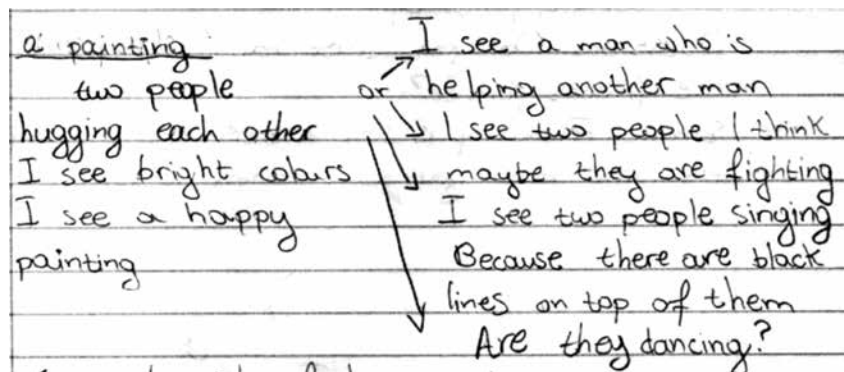 a painting
two people
hugging each other
I see bright colours
I see a happy
painting
or
I see a man who is
helping another man
I see two people I think
maybe they are fighting
I see two people singing
Because there are black
lines on top of them
Are they dancing?